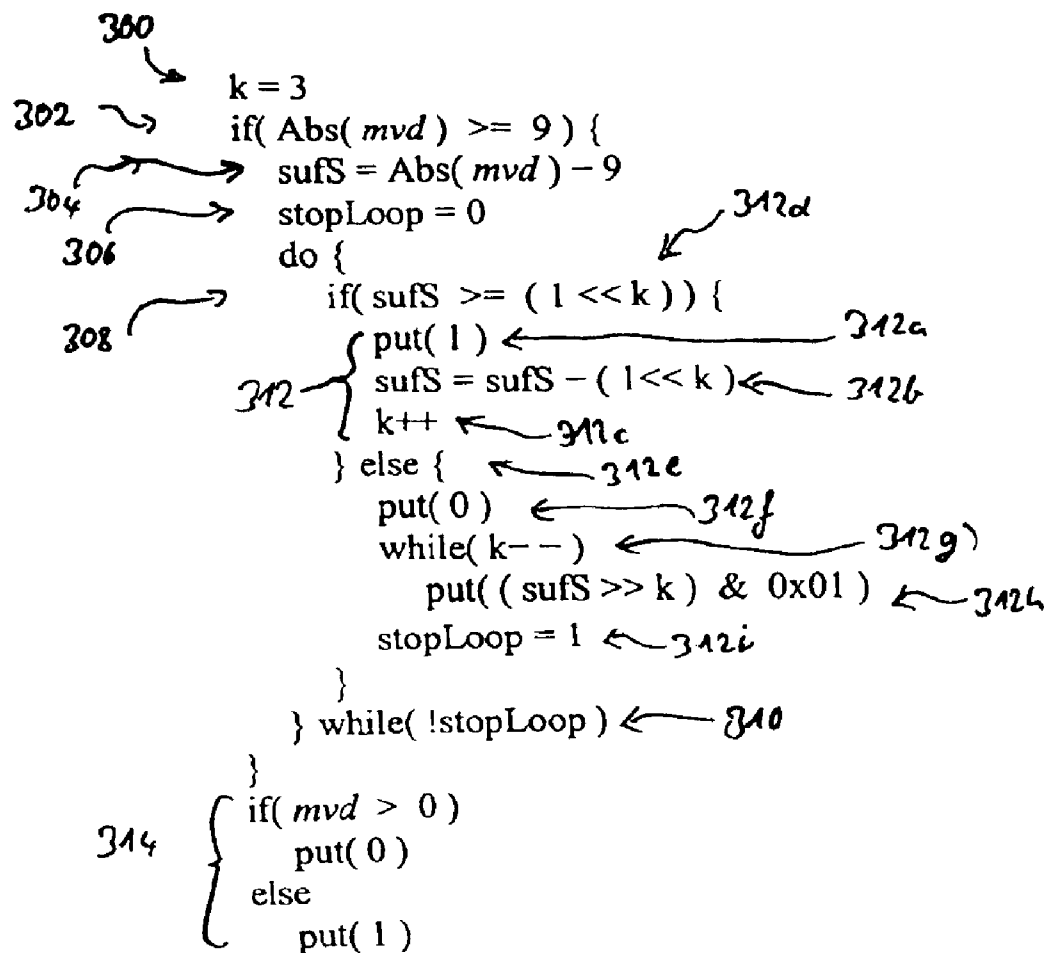 300
k = 3
302 if( Abs( mvd ) >= 9 ) {
304 sufS = Abs( mvd ) – 9
306 stopLoop = 0
do {
312d
308 if( sufS >= ( 1 << k ) ) {
put( 1 ) 312a
312 sufS = sufS – ( 1<< k ) 312b
k++ 312c
} else { 312e
put( 0 ) 312f
while( k– – ) 312g)
put( ( sufS >> k ) & 0x01 ) 312h
stopLoop = 1 312i
}
} while( !stopLoop ) 310
}
314 if( mvd > 0 )
put( 0 )
else
put( 1 )